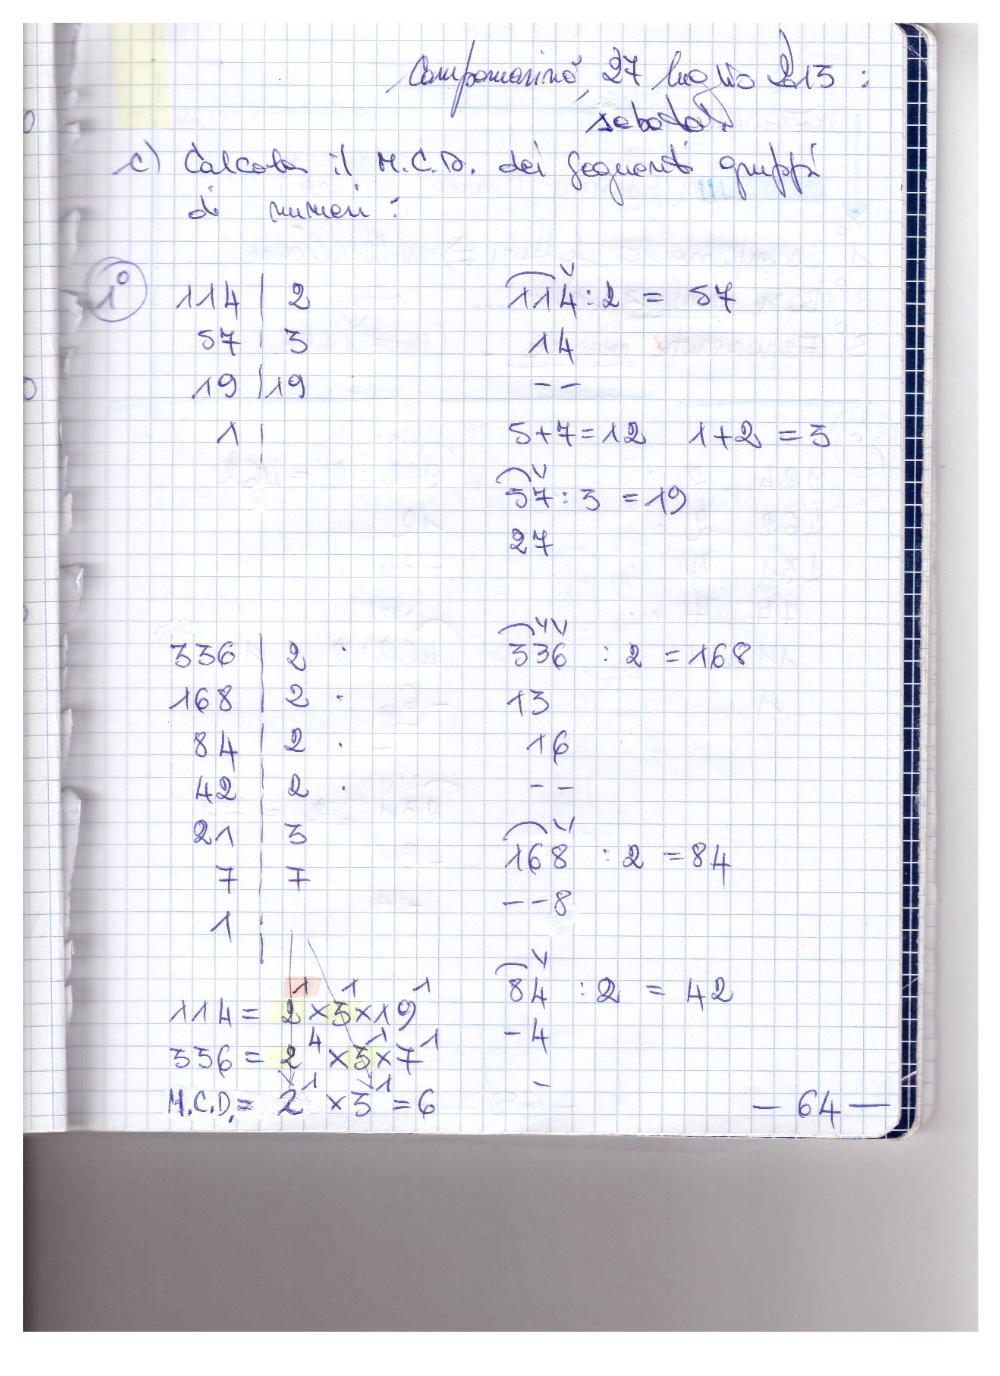 Campomarino, 27 luglio 2013 :
sabato.
c) Calcola il M.C.D. dei seguenti gruppi
di numeri :
1°
114 | 2
57 | 3
19 | 19
1 |
114 : 2 = 57
14
--
5+7=12 1+2 = 3
57 : 3 = 19
27
336 | 2 ·
168 | 2 ·
84 | 2 ·
42 | 2 ·
21 | 3
7 | 7
1 |
336 : 2 = 168
13
16
--
168 : 2 = 84
--8
84 : 2 = 42
-4
-
114 = 2¹×3¹×19¹
336 = 2⁴×3¹×7¹
M.C.D. = 2¹ × 3¹ = 6
— 64 —